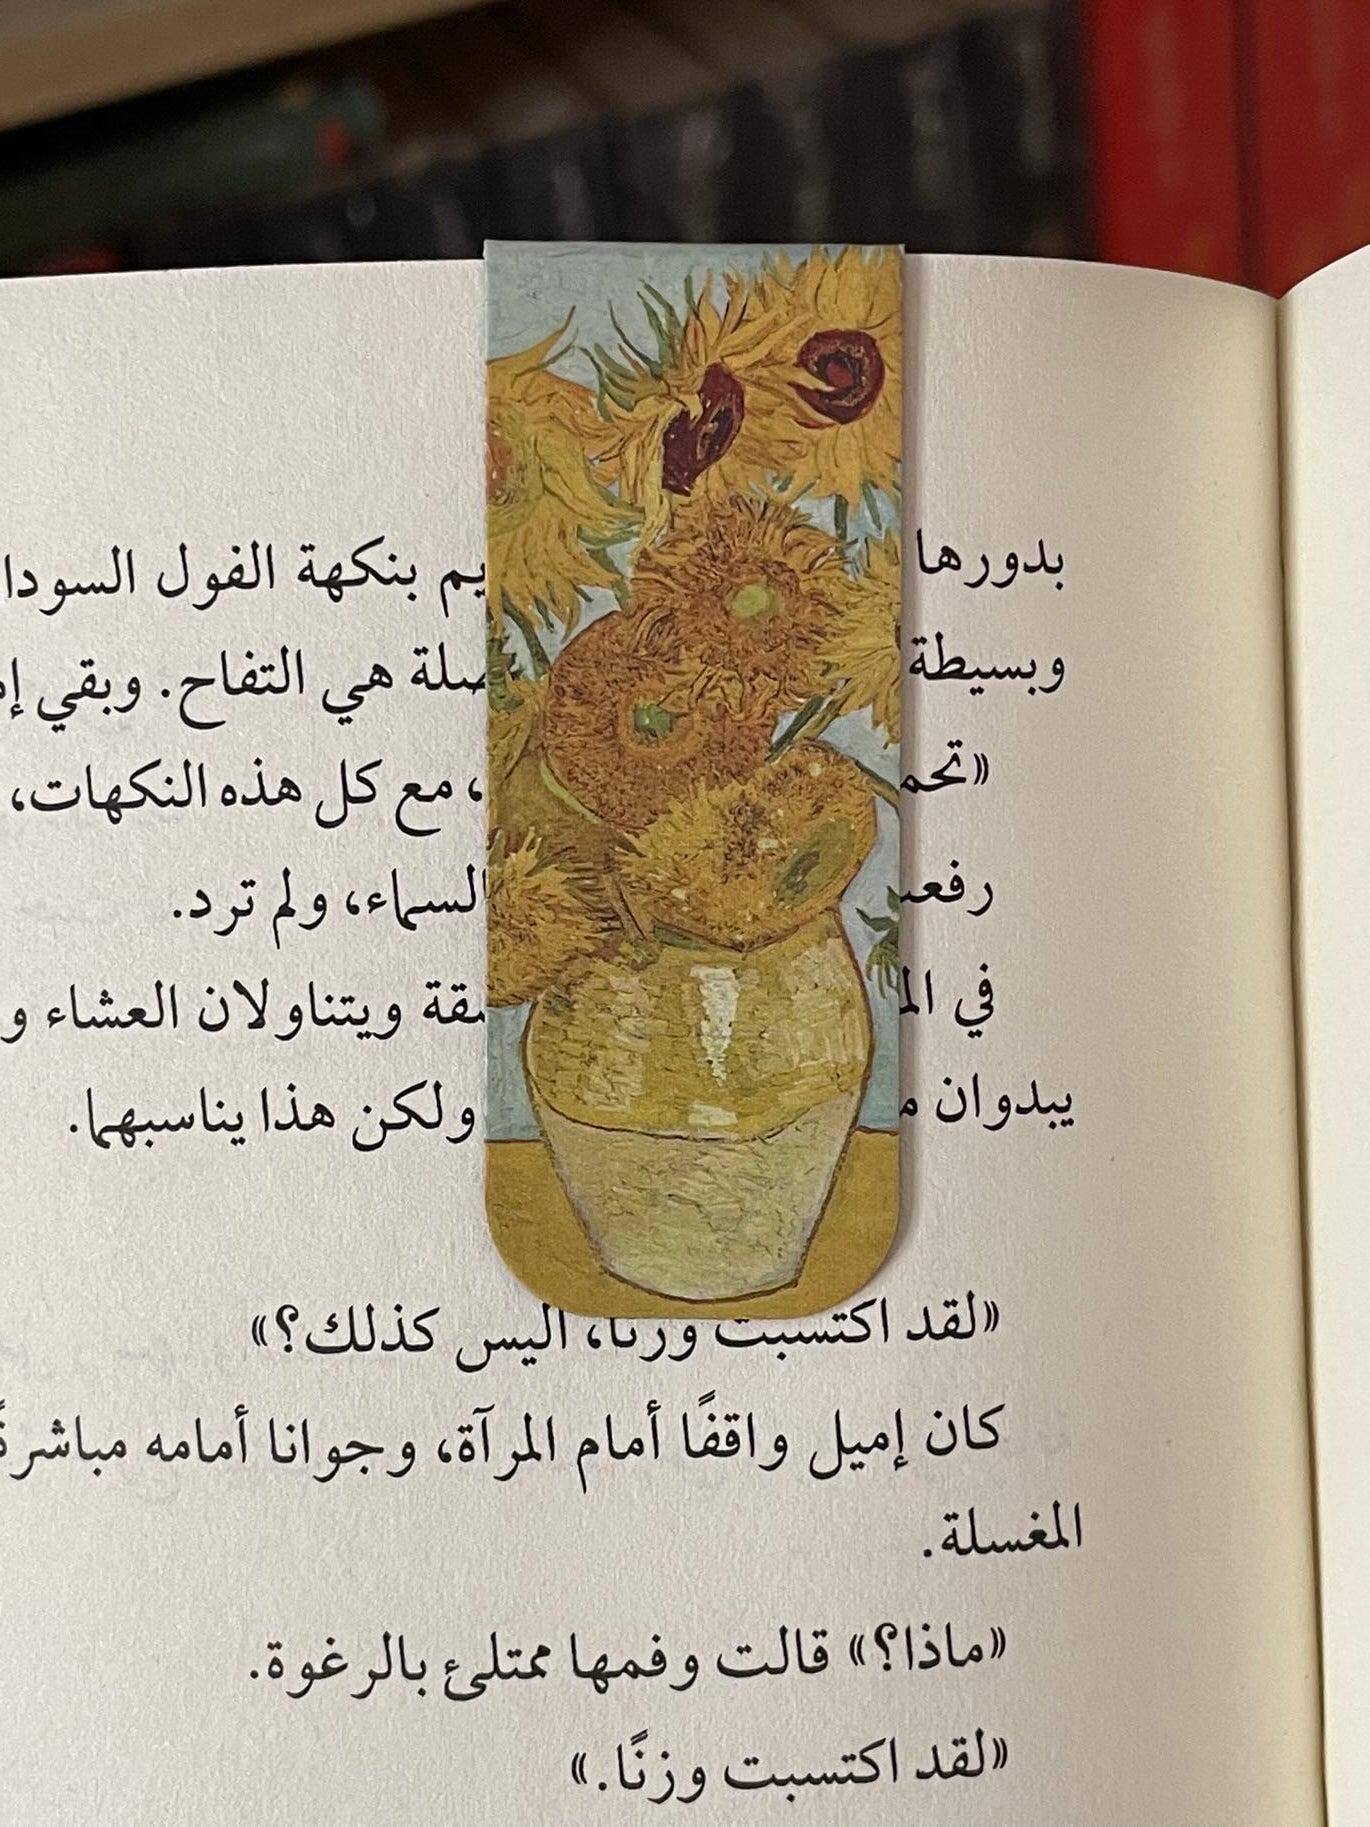 بدورها بنكهة الفول
وبسيطة هي التفاح. وبقي
مع كل هذه النكهات،
السماء، ولم ترد.
في ويتناولان العشاء و
يبدوان ولكن هذا يناسبهما.
«لقد اكتسبت وزنًا، أليس كذلك؟»
كان إميل واقفًا أمام المرآة، وجوانا أمامه مباشرةً
المغسلة.
«ماذا؟» قالت وفمها ممتلئ بالرغوة.
«لقد اكتسبت وزنًا.»